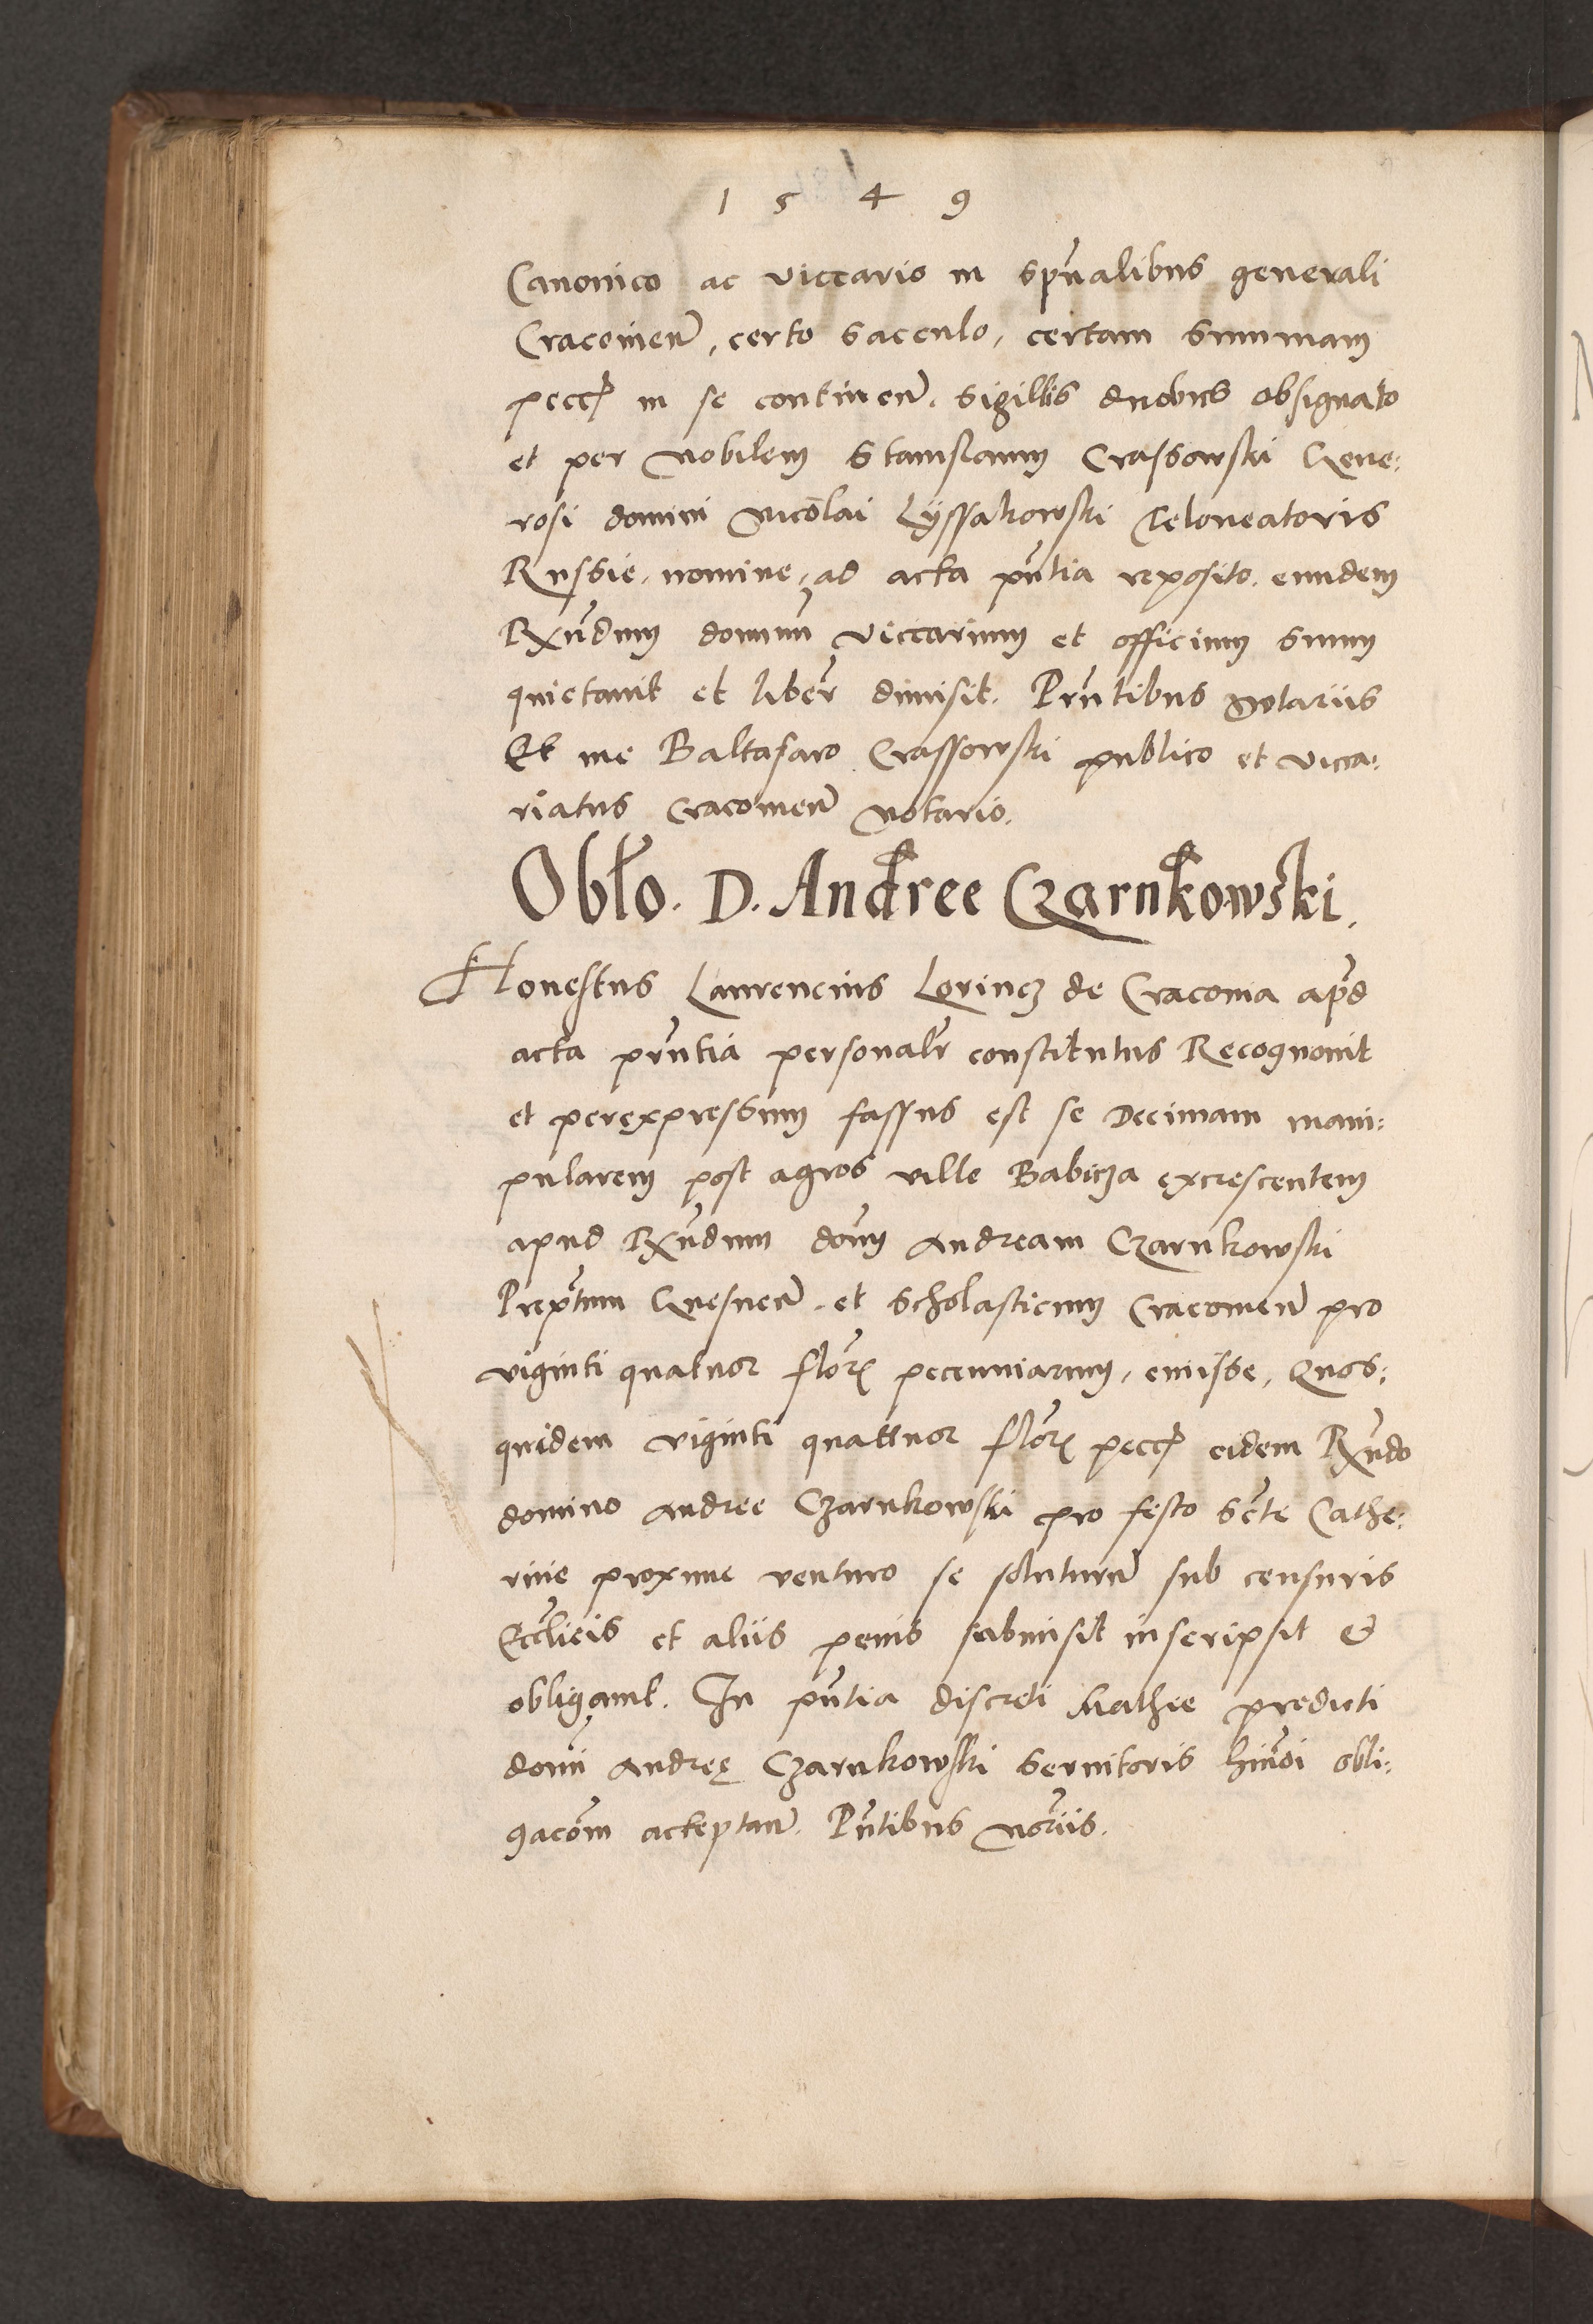 1 5 4 9
Canonico ac viccario in spũalibus generali
Cracovień, certo sacculo, certam summam
pecc̃ in se contineñ. sigillis duobus obsignato
et per Nobilem Stanislaum Crassowski Gene:
rosi domini Nicolai Lÿssakowski Teloneatoris
Russie, nomine, ad acta pñtia reposito. eundem
Rxñdum dominũ Viccarium et officium suum
quietavit et liberẽ dimisit. Prñtibus Notariis
Et me Baltasaro Crassowski publico et vicca:
riatus Cracovień Notario.
Obl̃o. D. Andree Czarnkowski.
Honestus Laurencius Lorincz de Cracovia apũd
acta prñtia personalr̃ constitutus Recognovit
et perexpressum fassus est se Decimam mani:
pularem post agros ville Babicza excrescentem
apud Rxñdum doñum Andream Czarnkowski
Prepˢᵗum Gnesneñ. et Scholasticum Cracovień pro
viginti quatuor flor̃ pecuniarum, emisse, Quos:
quidem viginti quattuor flor̃ pecc̃ eidem Rxñdo
domino Andree Czarnkowski pro festo Sctẽ Cathe:
rine proxime venturo se soluturũ sub censuris
Ecc̃licis et aliis penis submisit inscripsit &
obligavit. In pñtia discreti Mathie predicti
domĩ Andreę Czarnkowski servitoris hmõi obli:
gacõm acceptañ. Pñtibus Norĩis.